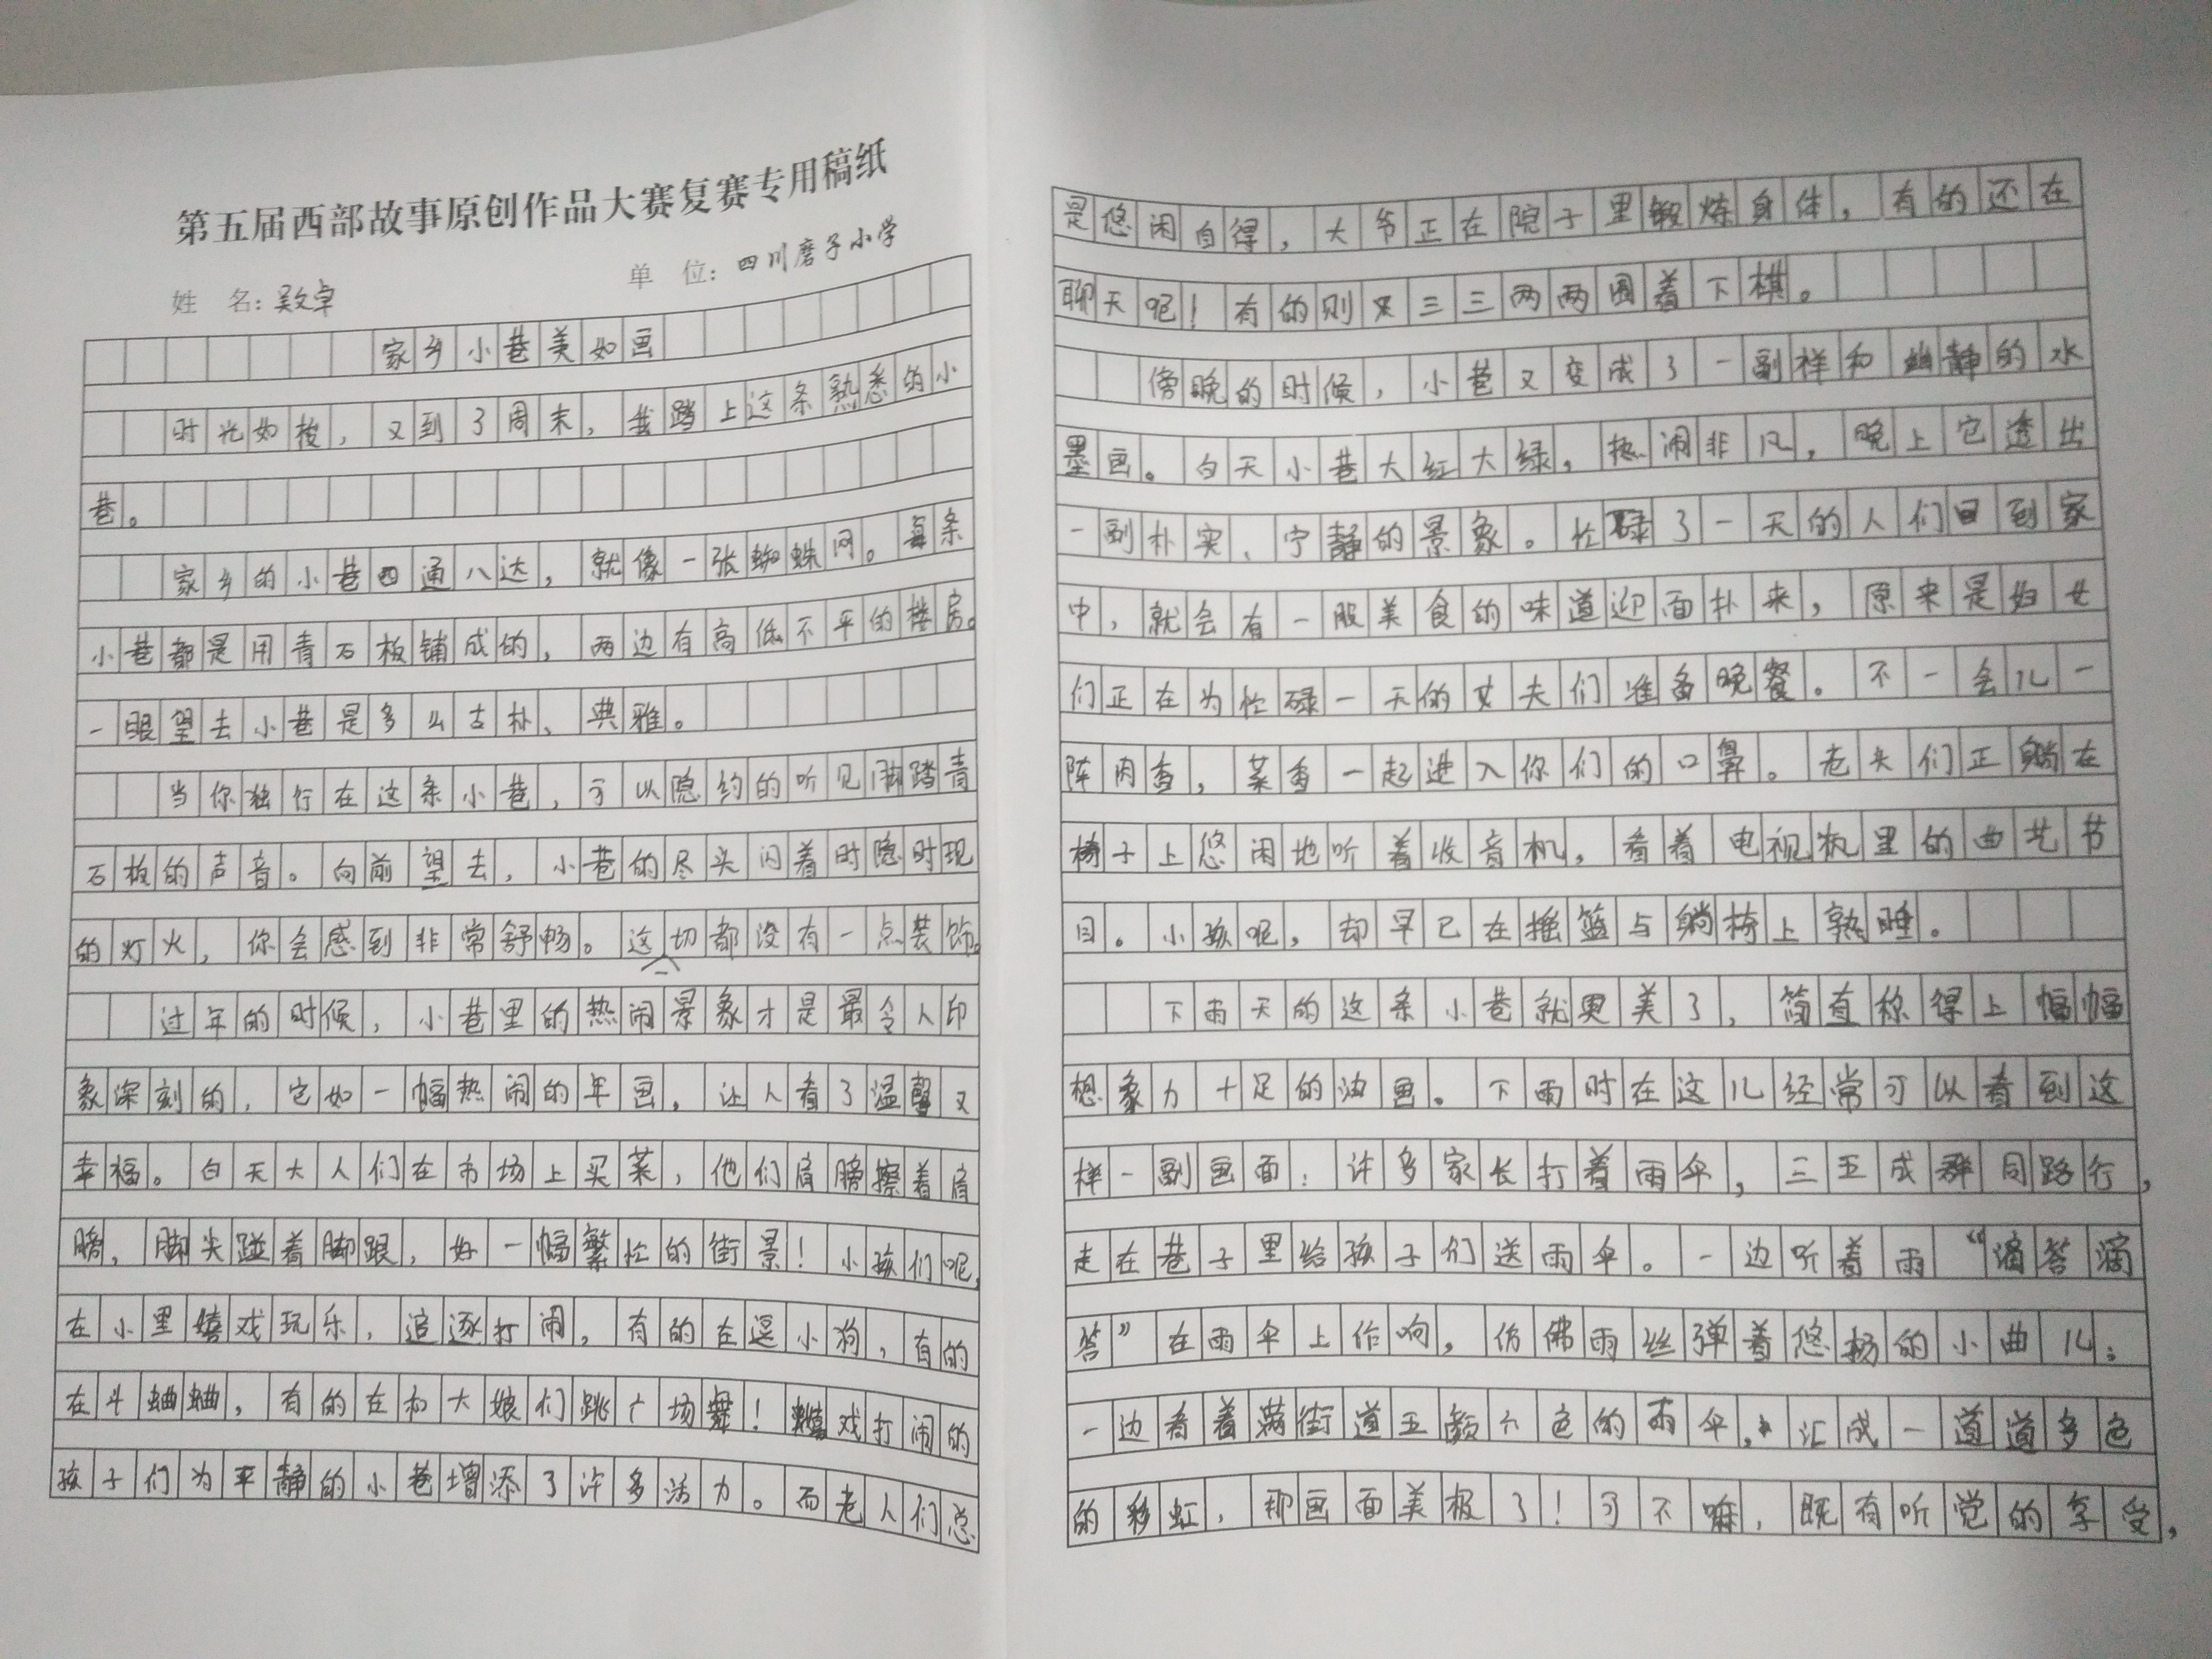 第五届西部故事原创作品大赛复赛专用稿纸
姓 名：吴文卓 单 位：四川磨子小学
家乡小巷美如画
时光如梭，又到了周末，我踏上这条熟悉的小
巷。
家乡的小巷四通八达，就像一张蜘蛛网。每条
小巷都是用青石板铺成的，两边有高低不平的楼房。
一眼望去小巷是多么古朴、典雅。
当你独行在这条小巷，可以隐约的听见脚踏青
石板的声音。向前望去，小巷的尽头闪着时隐时现
的灯火，你会感到非常舒畅。这一切都没有一点装饰。
过年的时候，小巷里的热闹景象才是最令人印
象深刻的，它如一幅热闹的年画，让人看了温馨又
幸福。白天大人们在市场上买菜，他们肩膀擦着肩
膀，脚尖碰着脚跟，好一幅繁忙的街景！小孩们呢，
在小里嬉戏玩乐，追逐打闹，有的在逗小狗，有的
在斗蛐蛐，有的在和大娘们跳广场舞！嬉戏打闹的
孩子们为平静的小巷增添了许多活力。而老人们总
是悠闲自得，大爷正在院子里锻炼身体，有的还在
聊天呢！有的则又三三两两围着下棋。
傍晚的时候，小巷又变成了一副祥和幽静的水
墨画。白天小巷大红大绿，热闹非凡，晚上它透出
一副朴实、宁静的景象。忙碌了一天的人们回到家
中，就会有一股美食的味道迎面扑来，原来是妇女
们正在为忙碌一天的丈夫们准备晚餐。不一会儿一
阵肉香，菜香一起进入你们的口鼻。老头们正躺在
椅子上悠闲地听着收音机，看着电视机里的曲艺节
目。小孩呢，却早已在摇篮与躺椅上熟睡。
下雨天的这条小巷就更美了，简直称得上幅幅
想象力十足的油画。下雨时在这儿经常可以看到这
样一副画面：许多家长打着雨伞，三五成群同路行，
走在巷子里给孩子们送雨伞。一边听着雨“滴答滴
答”在雨伞上作响，仿佛雨丝弹着悠扬的小曲儿；
一边看着满街道五颜六色的雨伞，汇成一道道多色
的彩虹，那画面美极了！可不嘛，既有听觉的享受，